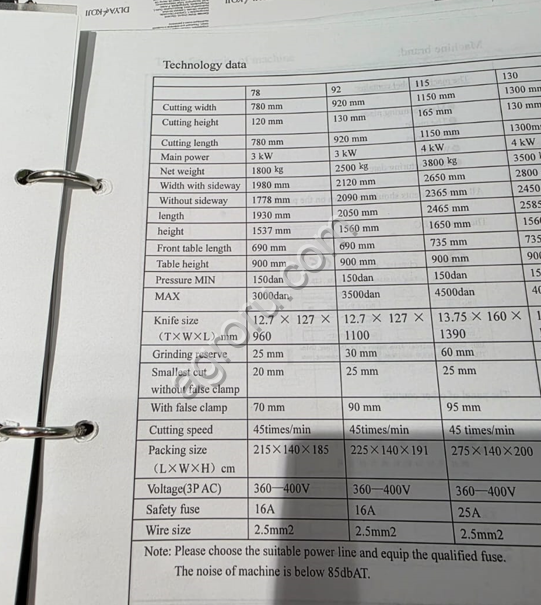 Technology data
78 92 115 130
Cutting width 780 mm 920 mm 1150 mm 1300 mm
Cutting height 120 mm 130 mm 165 mm 130 mm
Cutting length 780 mm 920 mm 1150 mm 1300m
Main power 3 kW 3 kW 4 kW 4 kW
Net weight 1800 kg 2500 kg 3800 kg 3500
Width with sideway 1980 mm 2120 mm 2650 mm 2800
Without sideway 1778 mm 2090 mm 2365 mm 2450
length 1930 mm 2050 mm 2465 mm 2585
height 1537 mm 1560 mm 1650 mm 156
Front table length 690 mm 690 mm 735 mm 735
Table height 900 mm 900 mm 900 mm 90
Pressure MIN 150dan 150dan 150dan 15
MAX 3000dan 3500dan 4500dan 40
Knife size 12.7 × 127 × 12.7 × 127 × 13.75 × 160 × 1
(T×W×L) mm 960 1100 1390
Grinding reserve 25 mm 30 mm 60 mm
Smallest cut 20 mm 25 mm 25 mm
without false clamp
With false clamp 70 mm 90 mm 95 mm
Cutting speed 45times/min 45times/min 45 times/min
Packing size 215×140×185 225×140×191 275×140×200
(L×W×H) cm
Voltage(3P AC) 360—400V 360—400V 360—400V
Safety fuse 16A 16A 25A
Wire size 2.5mm2 2.5mm2 2.5mm2
Note: Please choose the suitable power line and equip the qualified fuse.
The noise of machine is below 85dbAT.
agroru.com